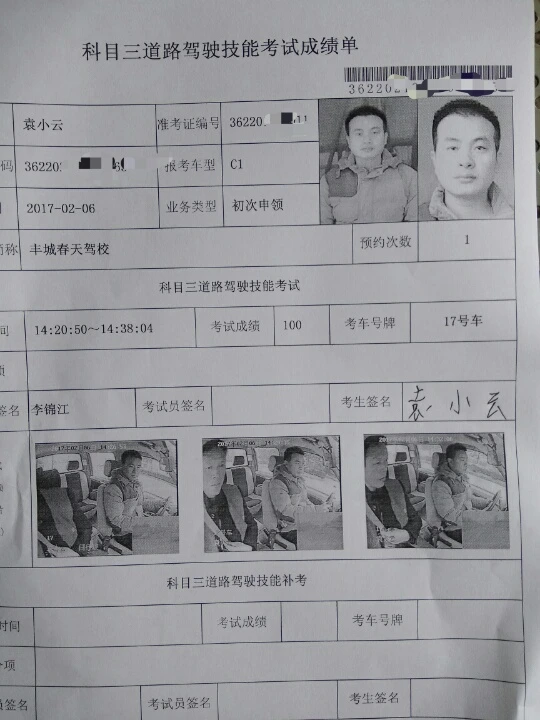 科目三道路驾驶技能考试成绩单
袁小云 准考证编号
码 报考车型 C1
2017-02-06 业务类型 初次申领
简称 丰城春天驾校 预约次数 1
科目三道路驾驶技能考试
间 14:20:50~14:38:04 考试成绩 100 考车号牌 17号车
签名 李锦江 考试员签名 考生签名 袁小云
科目三道路驾驶技能补考
时间 考试成绩 考车号牌
项
员签名 考试员签名 考生签名